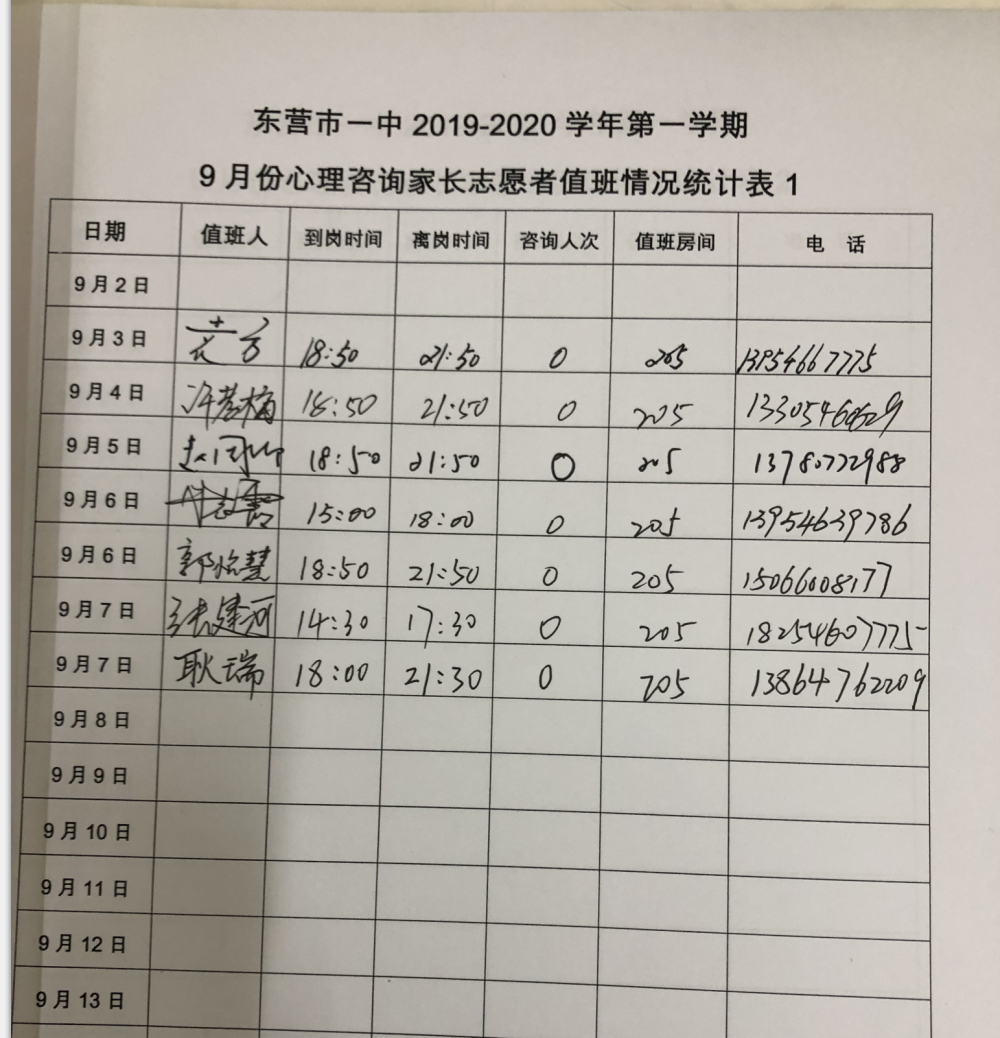 东营市一中 2019-2020 学年第一学期
9月份心理咨询家长志愿者值班情况统计表 1
日期 值班人 到岗时间 离岗时间 咨询人次 值班房间 电 话
9月2日
9月3日 18:50 21:50 0 205 13954667775
9月4日 18:50 21:50 0 205
9月5日 18:50 21:50 0 205 13780772988
9月6日 15:00 18:00 0 205 13954639786
9月6日 郭怡慧 18:50 21:50 0 205 15066008177
9月7日 张建河 14:30 17:30 0 205 18254607775
9月7日 耿瑞 18:00 21:30 0 205 13864762209
9月8日
9月9日
9月10日
9月11日
9月12日
9月13日